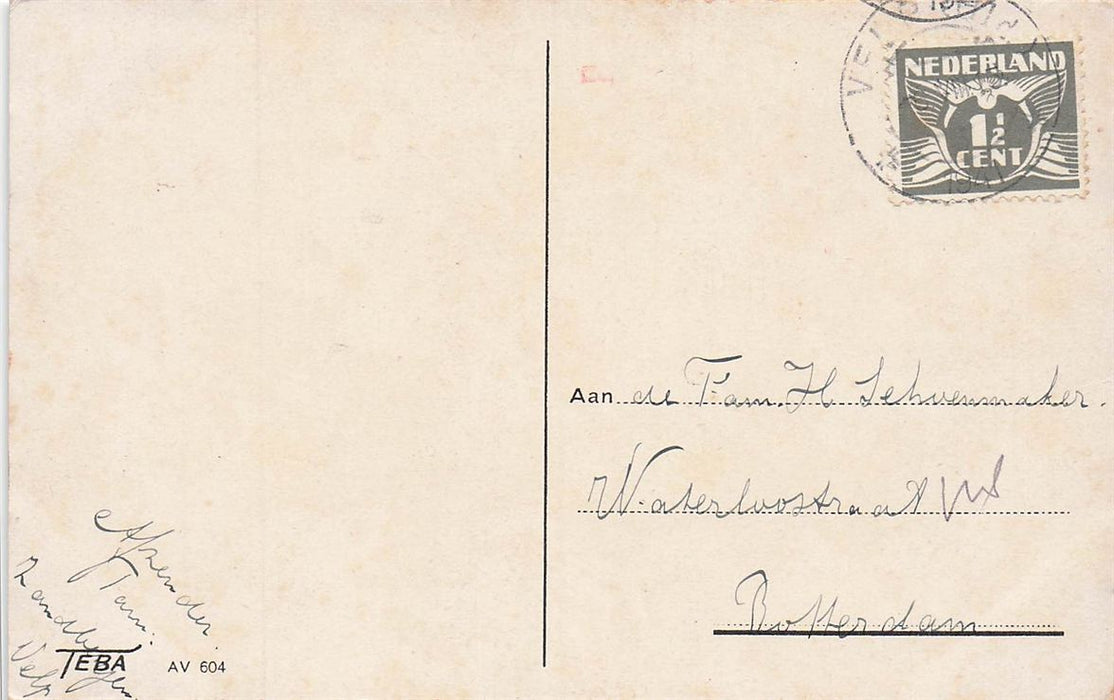 VELP
1941
NEDERLAND
1½
CENT
Aan de Fam. H Schoenmaker.
Waterloostraat
Rotterdam
Afzender
Fam:
Velp
TEBA AV 604